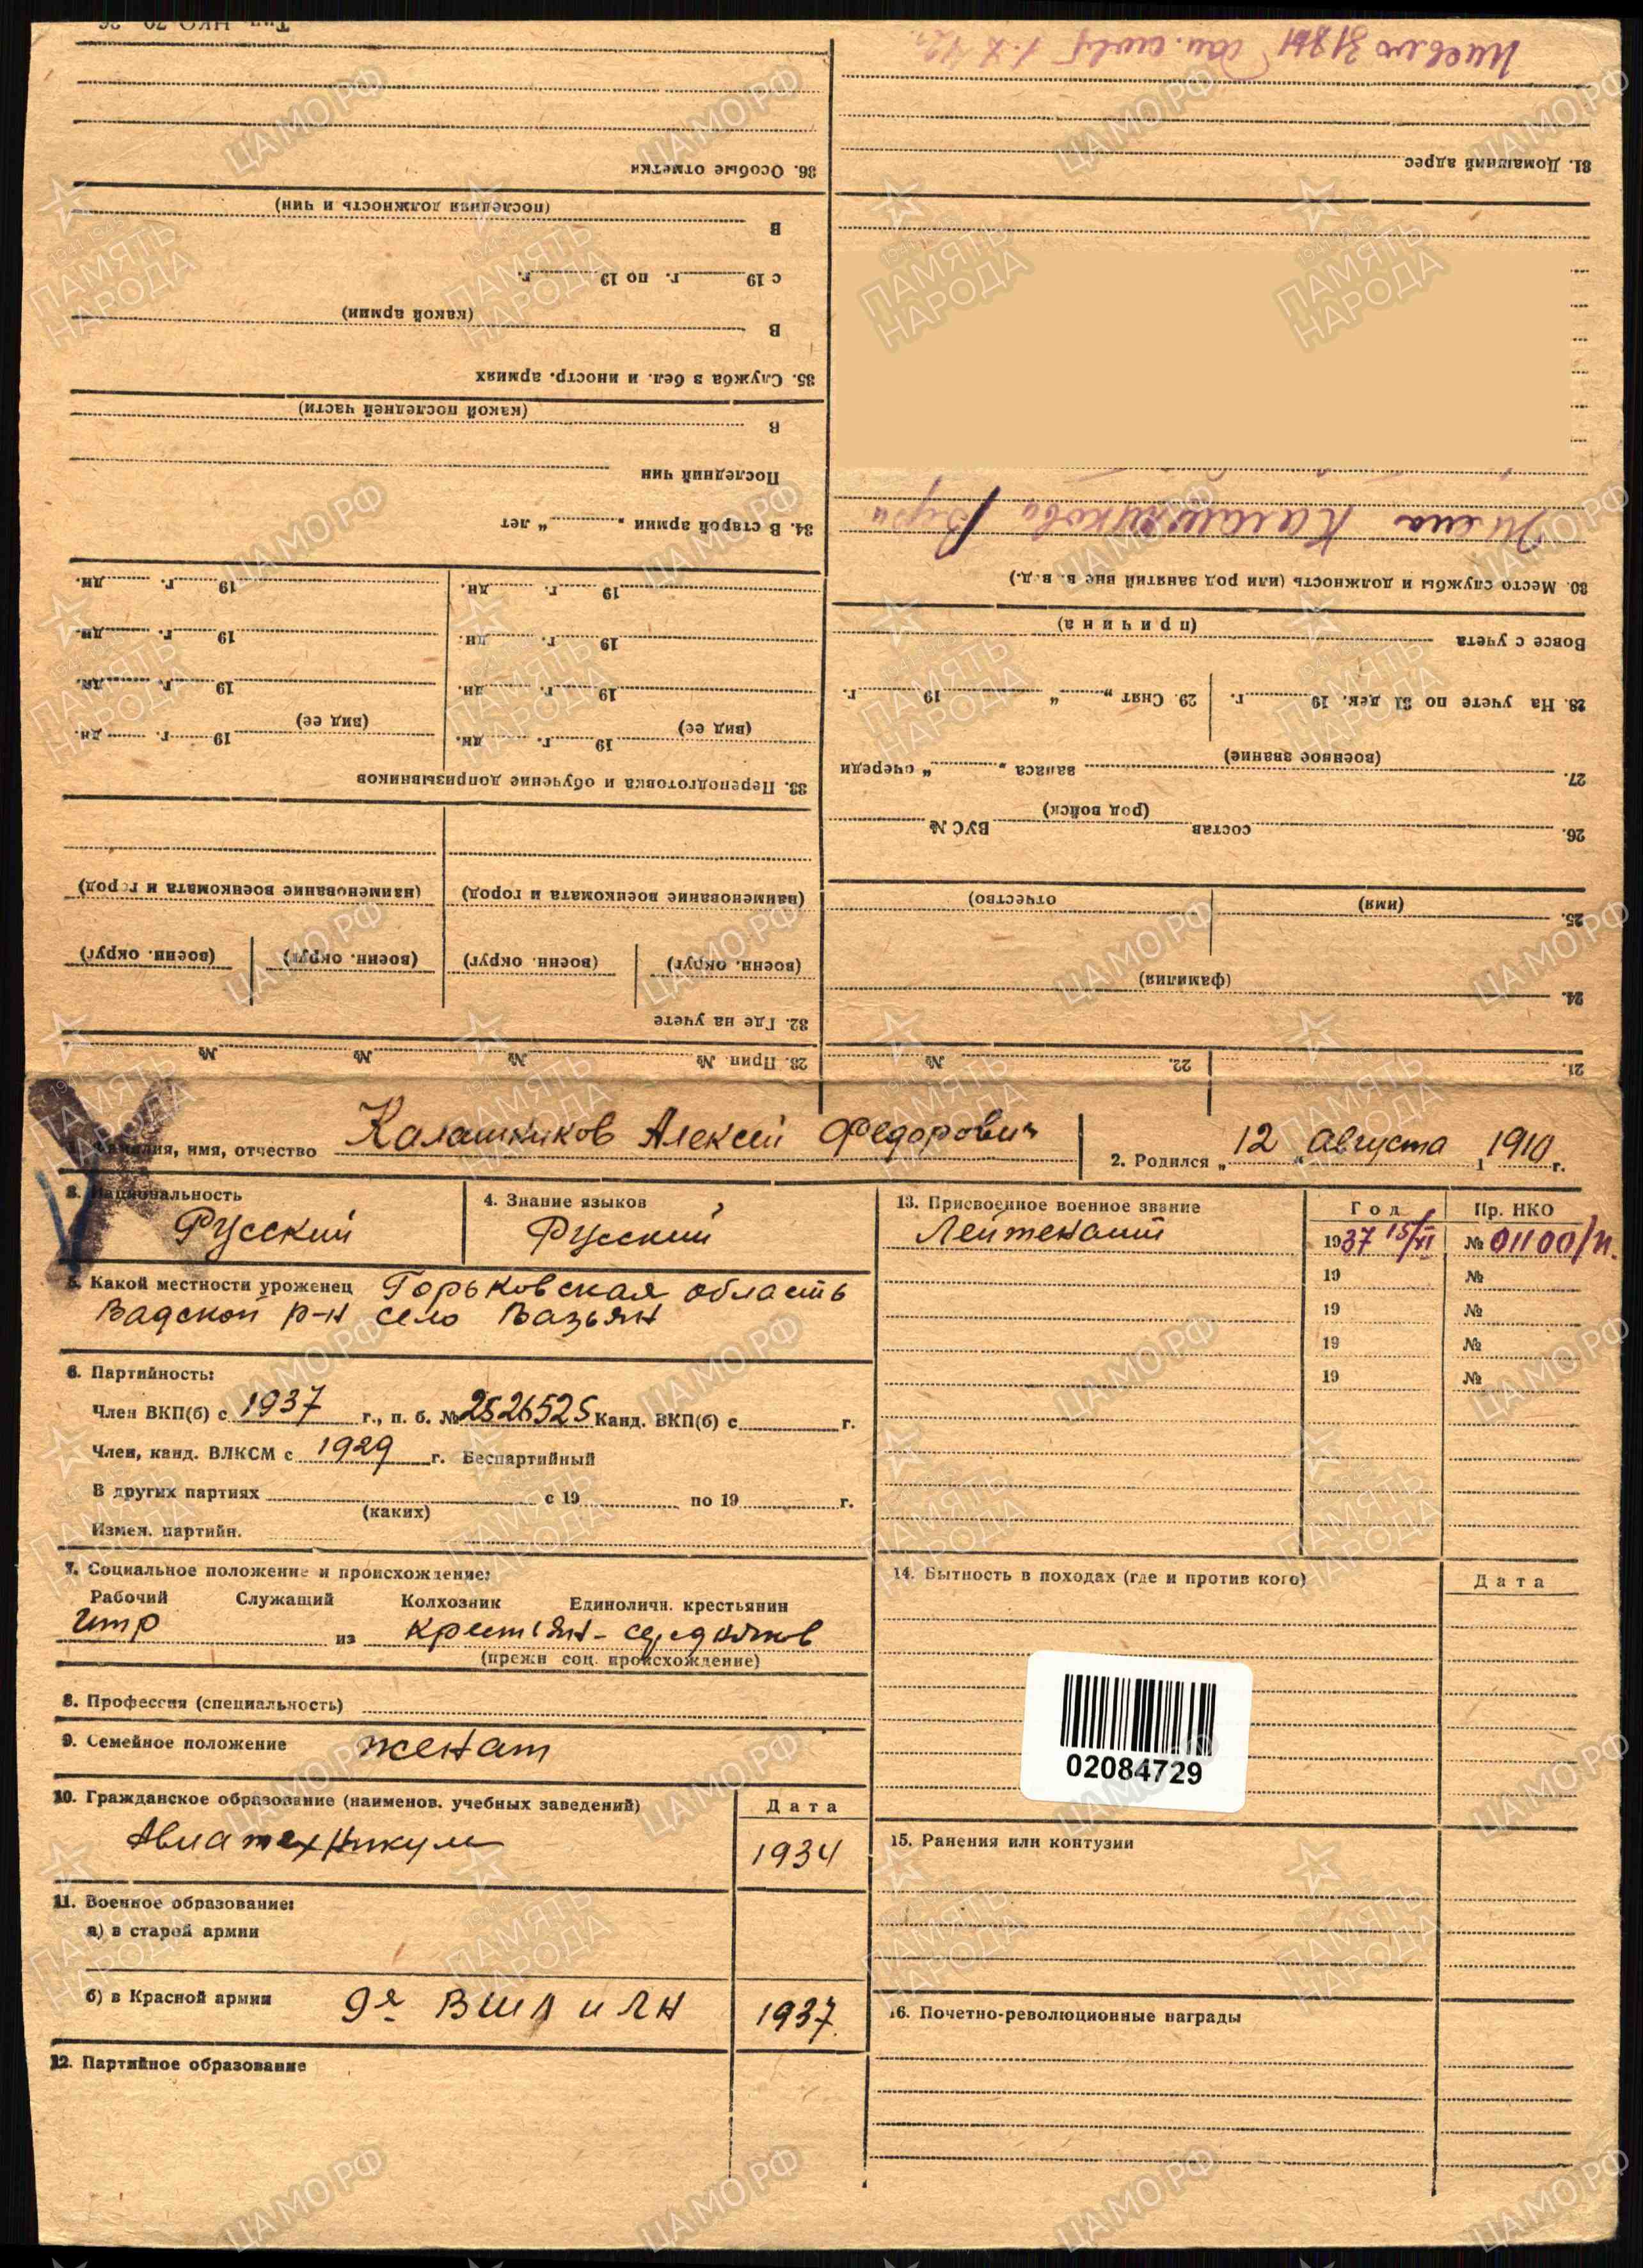 1. Фамилия, имя, отчество Калашников Алексей Федорович
2. Родился „12“ августа 1910 г.
3. Национальность Русский
4. Знание языков Русский
5. Какой местности уроженец Горьковская область
Вадской р-н село Вазьян
6. Партийность:
Член ВКП(б) с 1937 г., п. б. № 2526525 Канд. ВКП(б) с г.
Член, канд. ВЛКСМ с 1929 г. Беспартийный
В других партиях с 19 по 19 г.
(каких)
Измен. партийн.
7. Социальное положение и происхождение:
Рабочий Служащий Колхозник Единоличн. крестьянин
итр из крестьян-середняков
(прежн соц. происхождение)
8. Профессия (специальность)
9. Семейное положение женат
10. Гражданское образование (наименов. учебных заведений) Дата
Авиатехникум 1934
11. Военное образование:
а) в старой армии
б) в Красной армии 9я ВШЛ и ЛН 1937.
12. Партийное образование
13. Присвоенное военное звание Год Пр. НКО
Лейтенант 1937 15/XI № 01100/п.
19 №
19 №
19 №
19 №
14. Бытность в походах (где и против кого) Дата
02084729
15. Ранения или контузии
16. Почетно-революционные награды
21. 22. № 23. Прип. № № № №
24.
(фамилия)
25.
(имя) (отчество)
26. состав ВУС №
(род войск)
27. запаса „ “ очереди
(военное звание)
28. На учете по 31 дек. 19 г. 29. Снят „ “ 19 г.
Вовсе с учета
(причина)
30. Место службы и должность (или род занятий вне в. в д.)
Жена Калашникова Вера
31. Домашний адрес
32. Где на учете
(военн. округ) (военн. округ) (военн. округ) (военн. округ)
(наименование военкомата и город) (наименование военкомата и город)
33. Переподготовка и обучение допризывников
(вид ее) 19 г. дн. (вид ее) 19 г. дн.
19 г. дн. 19 г. дн.
19 г. дн. 19 г. дн.
19 г. дн. 19 г. дн.
34. В старой армии „ “ лет
Последний чин
в
(какой последней части)
35. Служба в бел. и иностр. армиях
в
(какой армии)
с 19 г. по 19 г.
в
(последняя должность и чин)
36. Особые отметки
ЦАМО.РФ
1941-1945
ПАМЯТЬ
НАРОДА